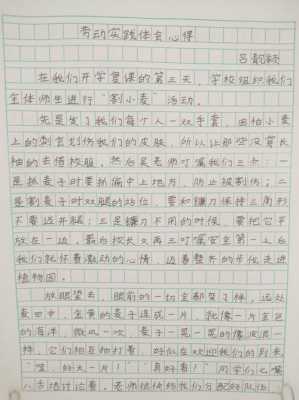 劳动实践体会心得
吕
在我们开学复课的第三天，学校组织我们
全体师生进行“割小麦”活动。
先是发了我们每个人一双手套，由怕小麦
上的刺会划伤我们的皮肤，所以让那些没穿长
袖的去借校服，然后吴老师叮嘱我们三点：一
是抓麦子时要抓偏中上地方，防止被割伤；二
是割麦子时双腿的站位，要和镰刀保持三角形
不要迈开腿；三是镰刀不用的时候，要把它平
放在一边，最后校长又再三叮嘱安全第一。之后
我们就怀着激动的心情，迈着整齐的步伐走进
植物园。
放眼望去，眼前的一切全都变了样，远处
麦田中，金黄的麦子连成一片，就像一片金色
的海洋，微风一吹，麦子一晃一晃的像波浪一
样，它们相互拍打着，好似在欢迎我们的到来
“哇，好大一片！”“真好看！”同学们七嘴
八舌地讨论着，老师很快给我们分配好队伍